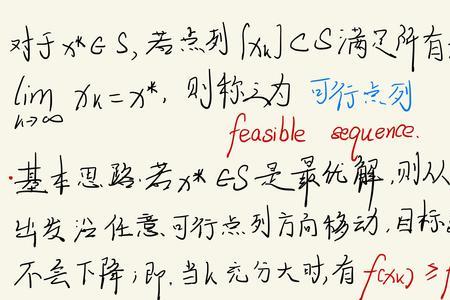 对于 x* ∈ S, 若点列 {xₖ} ⊂ S 满足所有
lim xₖ = x*, 则称之为 可行点列
k→∞
feasible sequence.
· 基本思路: 若 x* ∈ S 是最优解, 则从
出发沿任意可行点列方向移动, 目标
不会下降; 即, 当 k 充分大时, 有 f(xₖ) ≥